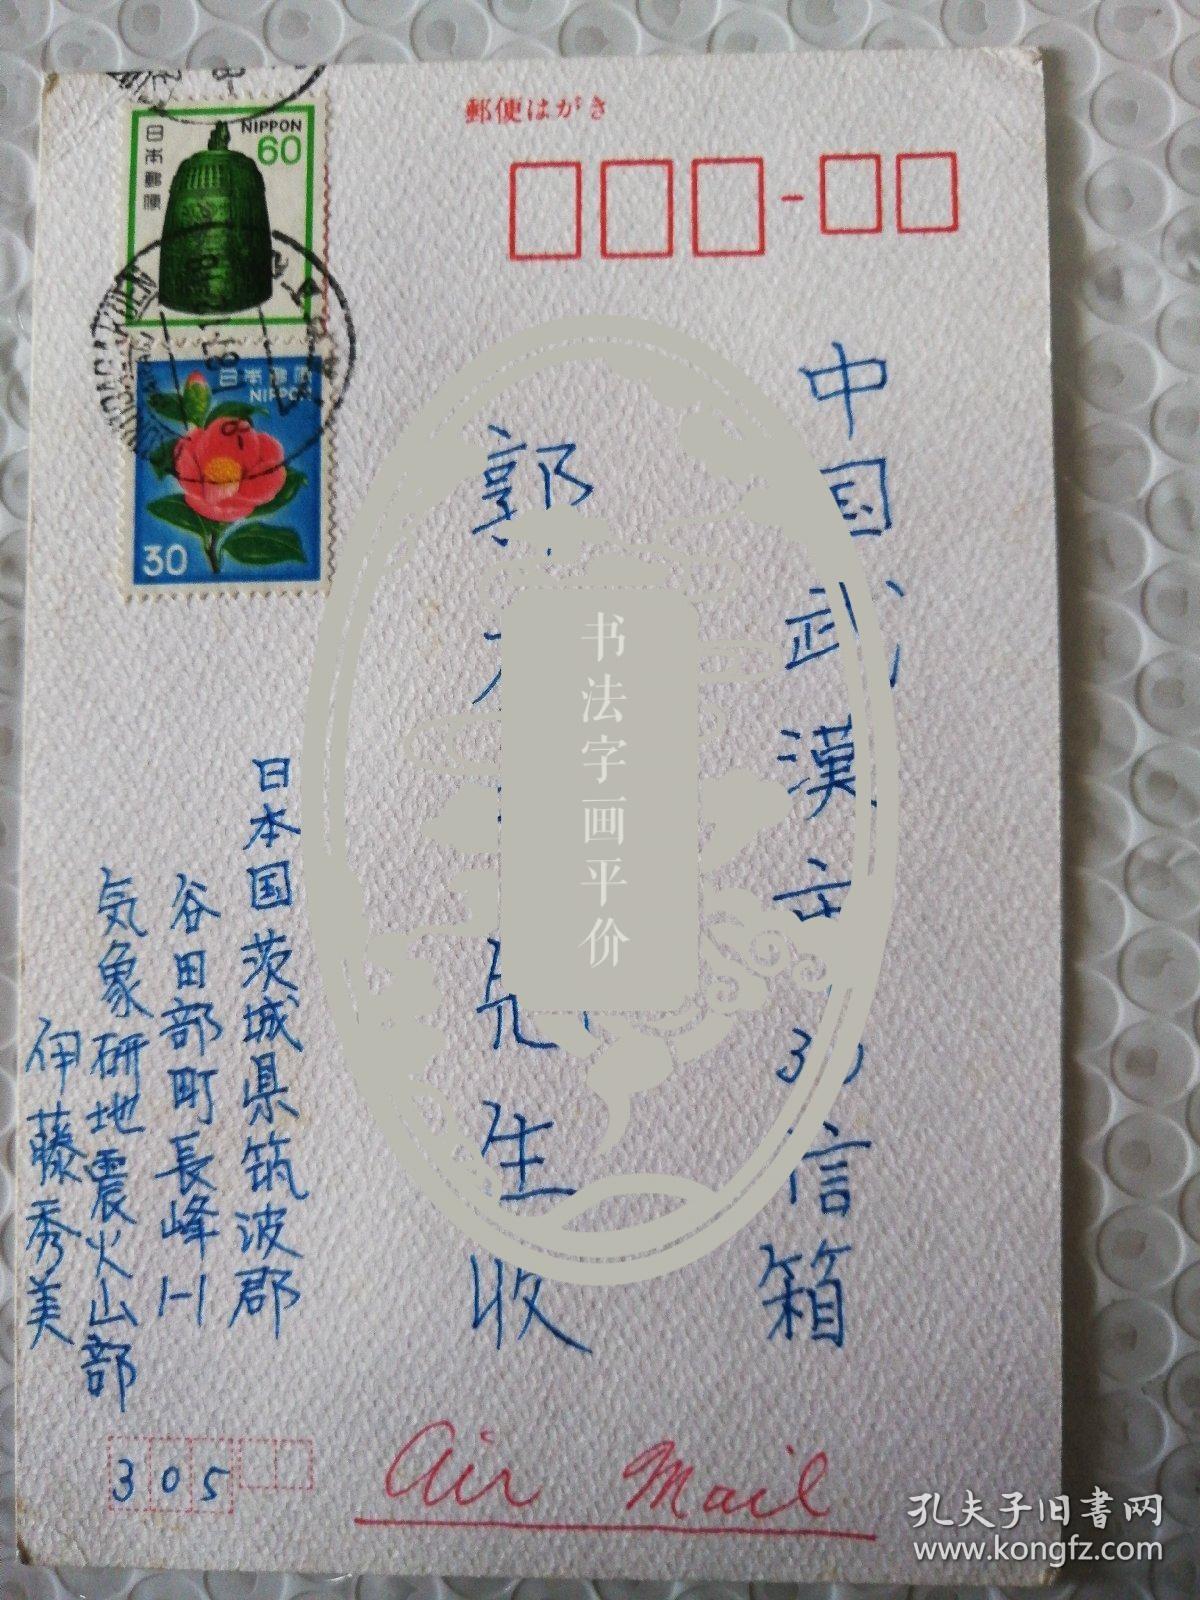 郵便はがき
日本郵便
NIPPON
60
日本郵便
NIPPON
30
中国武漢市
信箱
郭
先生收
日本国茨城県筑波郡
谷田部町長峰1-1
気象研地震火山部
伊藤秀美
305
Air Mail
书法字画平价
孔夫子旧书网
www.kongfz.com